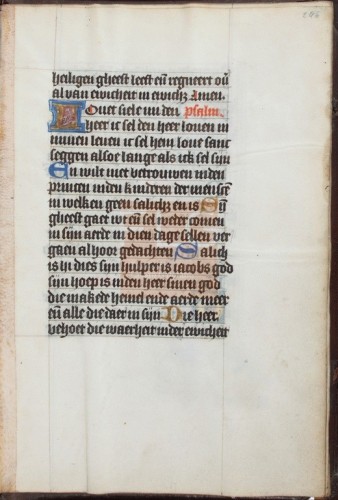 heiligen gheest leeft en̄ regneert ou̅
al van ewicheit in ewichz Amen.
Louet siele mi den psalm
heer ic sel den heer louen in
minen leuen ic sel hem loue sanc
seggen also lange als ic sel sijn
En wilt niet betrouwen inden
princen inden kinderen der menscē
in welken geen salichz en is Sijn
gheest gaet wt en̄ sel weder comen
in sijn aerde in dien dage sellen ver
gaen al hoer gedachten Salich
is hi dies sijn hulper is iacobs god
sijn hoep is inden heer sinen god
die makede hemel ende aerde meer
en̄ alle die daer in sijn Die heer
behoet die waerheit inder ewicheit